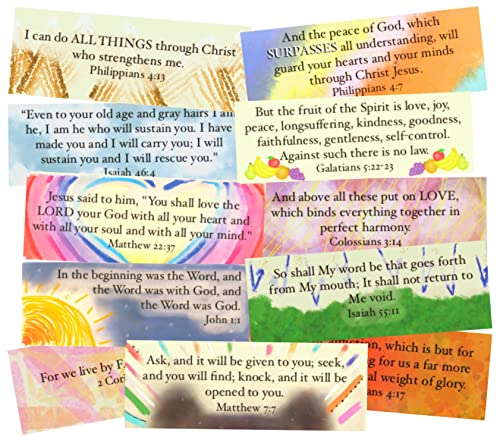 I can do ALL THINGS through Christ
who strengthens me.
Philippians 4:13
And the peace of God, which
SURPASSES all understanding, will
guard your hearts and your minds
through Christ Jesus.
Philippians 4:7
"Even to your old age and gray hairs I am
he, I am he who will sustain you. I have
made you and I will carry you; I will
sustain you and I will rescue you."
Isaiah 46:4
But the fruit of the Spirit is love, joy,
peace, longsuffering, kindness, goodness,
faithfulness, gentleness, self-control.
Against such there is no law.
Galatians 5:22-23
Jesus said to him, "You shall love the
LORD your God with all your heart and
with all your soul and with all your mind."
Matthew 22:37
And above all these put on LOVE,
which binds everything together in
perfect harmony.
Colossians 3:14
In the beginning was the Word, and
the Word was with God, and
the Word was God.
John 1:1
So shall My word be that goes forth
from My mouth; It shall not return to
Me void.
Isaiah 55:11
For we live by
2 Cori
Ask, and it will be given to you; seek,
and you will find; knock, and it will be
opened to you.
Matthew 7:7
which is but for
ing for us a far more
al weight of glory.
4:17